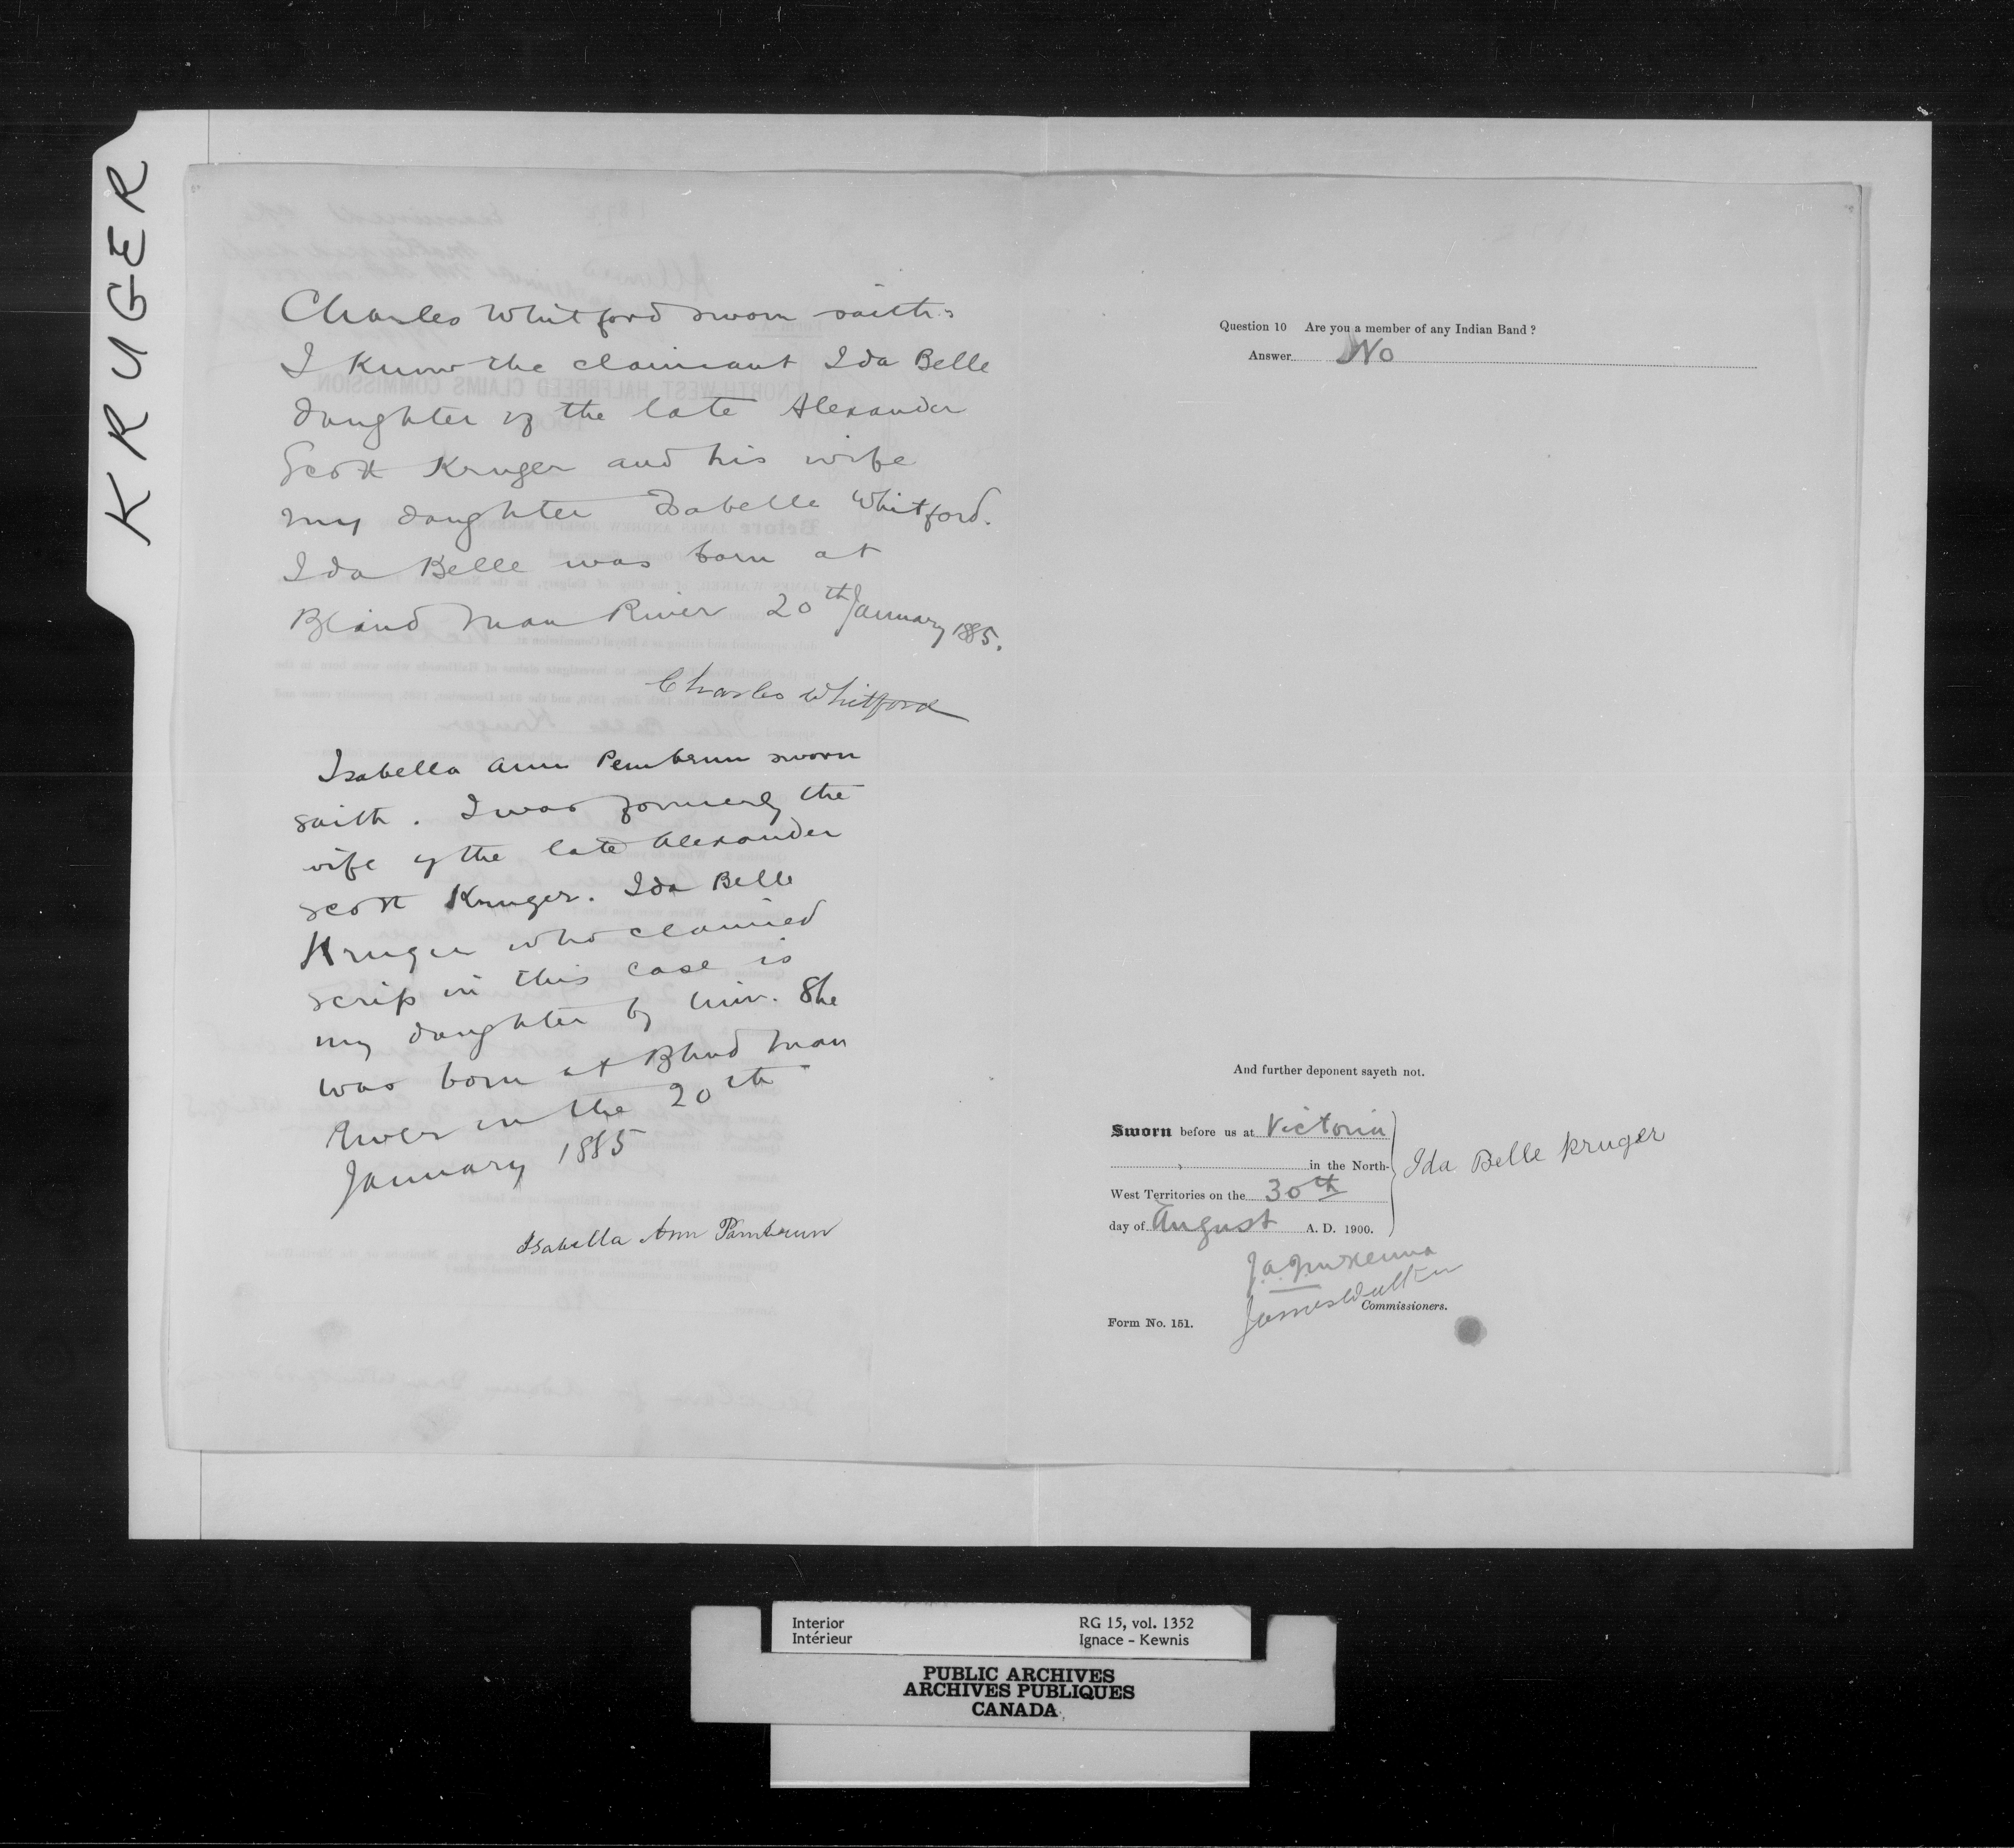 KRUGER
Charles Whitford sworn saith:
I know the claimant Ida Belle
daughter of the late Alexander
Scott Kruger and his wife
my daughter Isabelle Whitford.
Ida Belle was born at
Blind Man River 20th January 1885.
Charles Whitford
Isabella Ann Pembrun sworn
saith. I was formerly the
wife of the late Alexander
Scott Kruger. Ida Belle
Kruger who claimed
scrip in this case is
my daughter by him. She
was born at Blind Man
River on the 20th
January 1885
Isabella Ann Pambrun
Question 10 Are you a member of any Indian Band ?
Answer No
And further deponent sayeth not.
Sworn before us at Victoria
in the North-
West Territories on the 30th
day of August A. D. 1900.
Ida Belle Kruger
J.A.J. McKenna
James Walker
Commissioners.
Form No. 151.
Interior RG 15, vol. 1352
Intérieur Ignace - Kewnis
PUBLIC ARCHIVES
ARCHIVES PUBLIQUES
CANADA